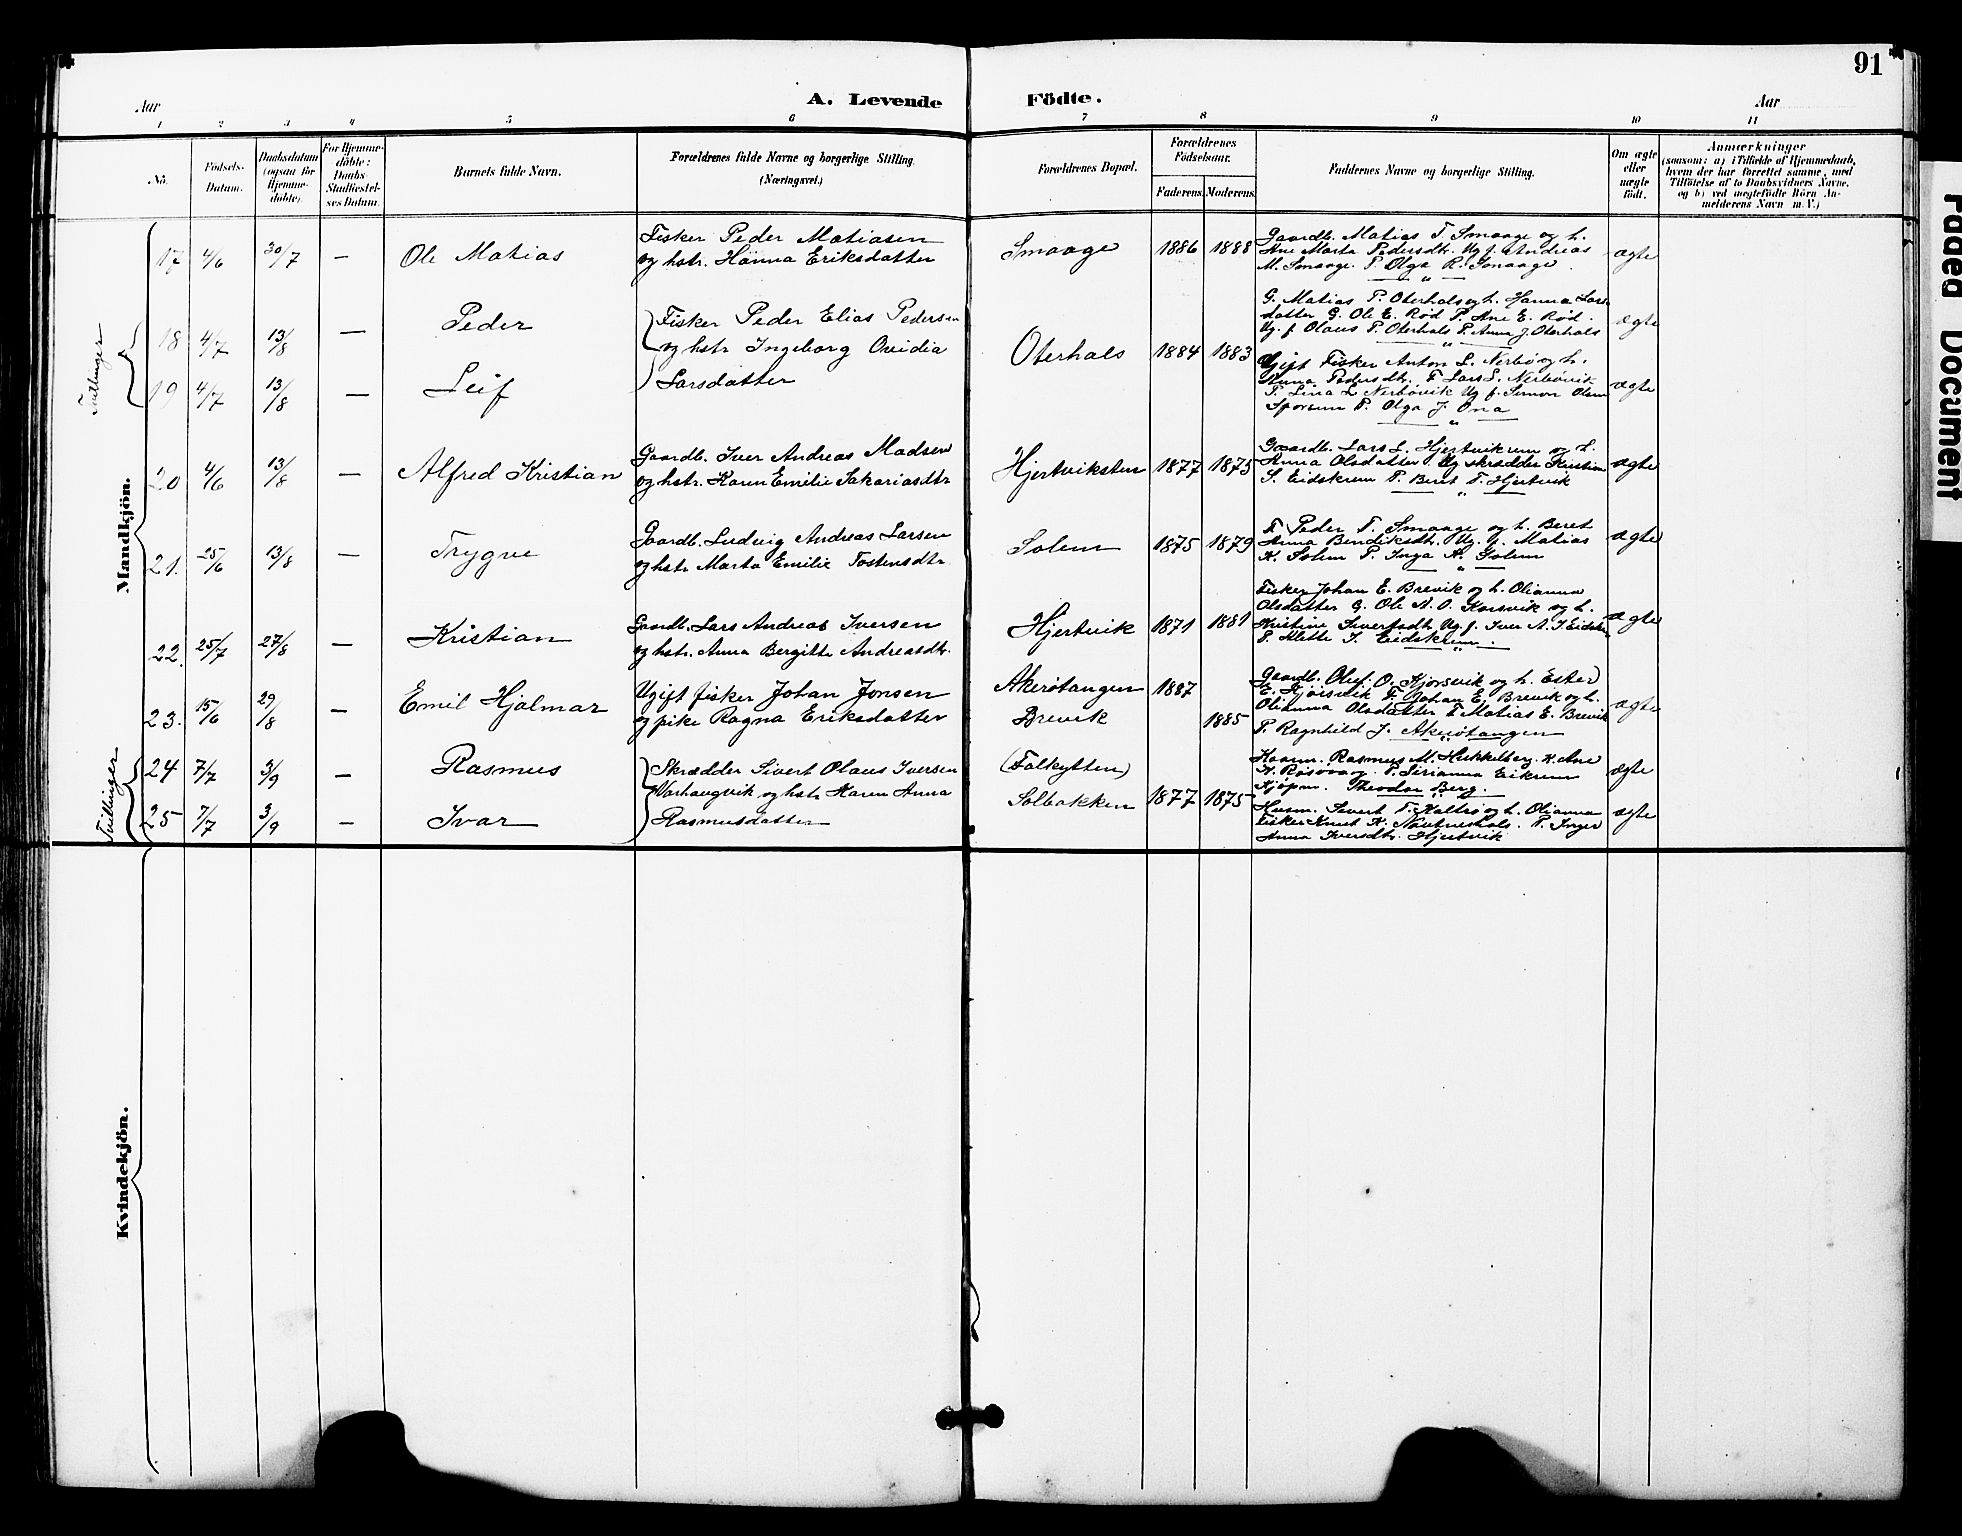 91
Aar
A. Levende Födte.
Aar
1 2 3 4 5 6 7 8 9 10 11
No.
Födsels-
Datum.
Daabsdatum
(ogsaa for
Hjemme-
døbte).
For Hjemme-
döbte:
Daabs-
Stadfæstel-
ses Datum.
Barnets fulde Navn.
Forældrenes fulde Navne og borgerlige Stilling.
(Næringsvei.)
Forældrenes Bopæl.
Forældrenes
Födselsaar.
Faderens. Moderens.
Faddernes Navne og borgerlige Stilling.
Om ægte
eller
uægte
födt.
Anmærkninger
(saasom: a) i Tilfælde af Hjemmedaab,
hvem der har forrettet samme, med
Tilföielse af to Daabsvidners Navne.
og b) ved uægtefödte Börn An-
melderens Navn m. V.)
Mandkjön.
17 4/6 30/7 — Ole Matias
Fisker Peder Matiasen
og hstr. Hanna Eriksdatter
Smaage 1886 1888
Gaardb. Matias T. Smaage og h.
Ane Marta Pedersdtr. Ug. f. Andreas
M. Smaage. P. Olga R. Smaage.
ægte
Tvillinger
18 4/7 13/8 — Peder
19 4/7 13/8 — Leif
Fisker Peder Elias Pedersen
og hstr Ingeborg Ovidia
Larsdatter
Oterhals 1884 1883
G. Matias P. Oterhals og h. Hanna Lars-
datter G. Ole E. Rød P. Ane E. Rød.
Ug. f. Olaus P. Oterhals P. Anna J. Oterhals
ægte
Ugift Fisker Anton L. Nerbø og h.
Anna Pedersdtr. F. Lars L. Nerbøvik
P. Lina L. Nerbøvik Ug f. Simon Olsen
P. Olga J. Ona
ægte
20 4/6 13/8 — Alfred Kristian
Gaardb. Iver Andreas Madsen
og hstr. Karen Emilie Sakariasdtr
Hjertviksten 1877 1875
Gaardb. Lars L. Hjertvikrem og h.
Anna Olsdatter Ug skrædder Kristian
S. Eidskrem P. Beret T. Hjertvik
ægte
21. 25/6 13/8 — Trygve
Gaardb. Ludvig Andreas Larsen
og hstr Marta Emilie Tostensdtr.
Solem 1875 1879
F. Peder T. Smaage og h. Beret
Anna Bendiksdtr. Ug. f. Matias
K. Solem P. Inga K. Solem
ægte
22. 25/7 27/8 — Kristian
Gaardb. Lars Andreas Iversen
og hstr. Anna Bergitte Andreasdtr.
Hjertvik 1871 1881
Fisker Johan E. Brevik og h. Olianna
Olsdatter G. Ole A. O. Korsvik og h.
Kristine Sivertsdtr Ug. f. Iver A. I Eidskr
P. Mette I. Eidskrem
ægte
23. 15/6 29/8 — Emil Hjalmar
Ugift fisker Johan Jonsen
og pike Ragna Eriksdatter
Akerøtangen 1887
Brevik 1885
Gaardb. Oluf O. Kjørsvik og h. Ester
E. Kjørsvik F. Johan E. Brevik og h.
Olianna Olsdatter F. Matias E. Brevik
P. Ragnhild J. Akerøtangen
ægte
Tvillinger
24 7/7 3/9 — Rasmus
25 7/7 3/9 — Ivar
Skrædder Sivert Olaus Iversen
Varhaugvik og hstr Karen Anna
Rasmusdatter
(Falkytten)
Solbakken 1877 1875
Haarm. Rasmus M. Hukkelberg. K. Ane
K. Røsovaag. P. Sirianna Eikrem
Kjøpm. Theodor Berg.
ægte
Husm. Sivert T. Haltes og h. Olianna
Fisker Knut K. P. Inger
Anna Iversdtr. Hjertvik
ægte
Kvindekjön.
Faded Document